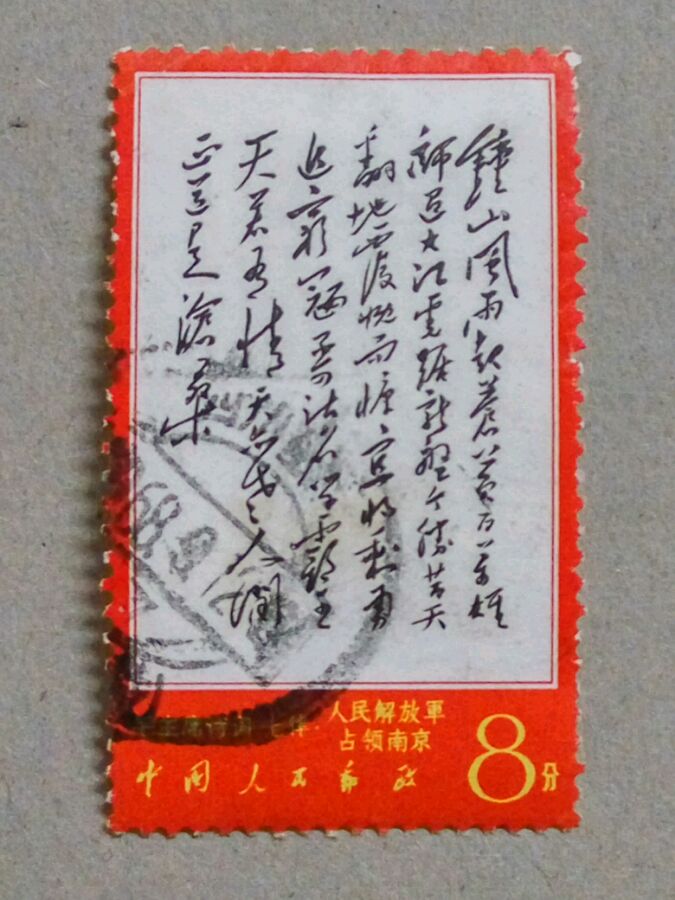 鐘山風雨起蒼黃百万雄
師過大江虎踞龍盤今勝昔天
翻地覆慨而慷宜將剩勇
追窮寇不可沽名學霸王
天若有情天亦老人間
正道是滄桑
主席诗词 七律·人民解放軍
占領南京
中国人民邮政 8分